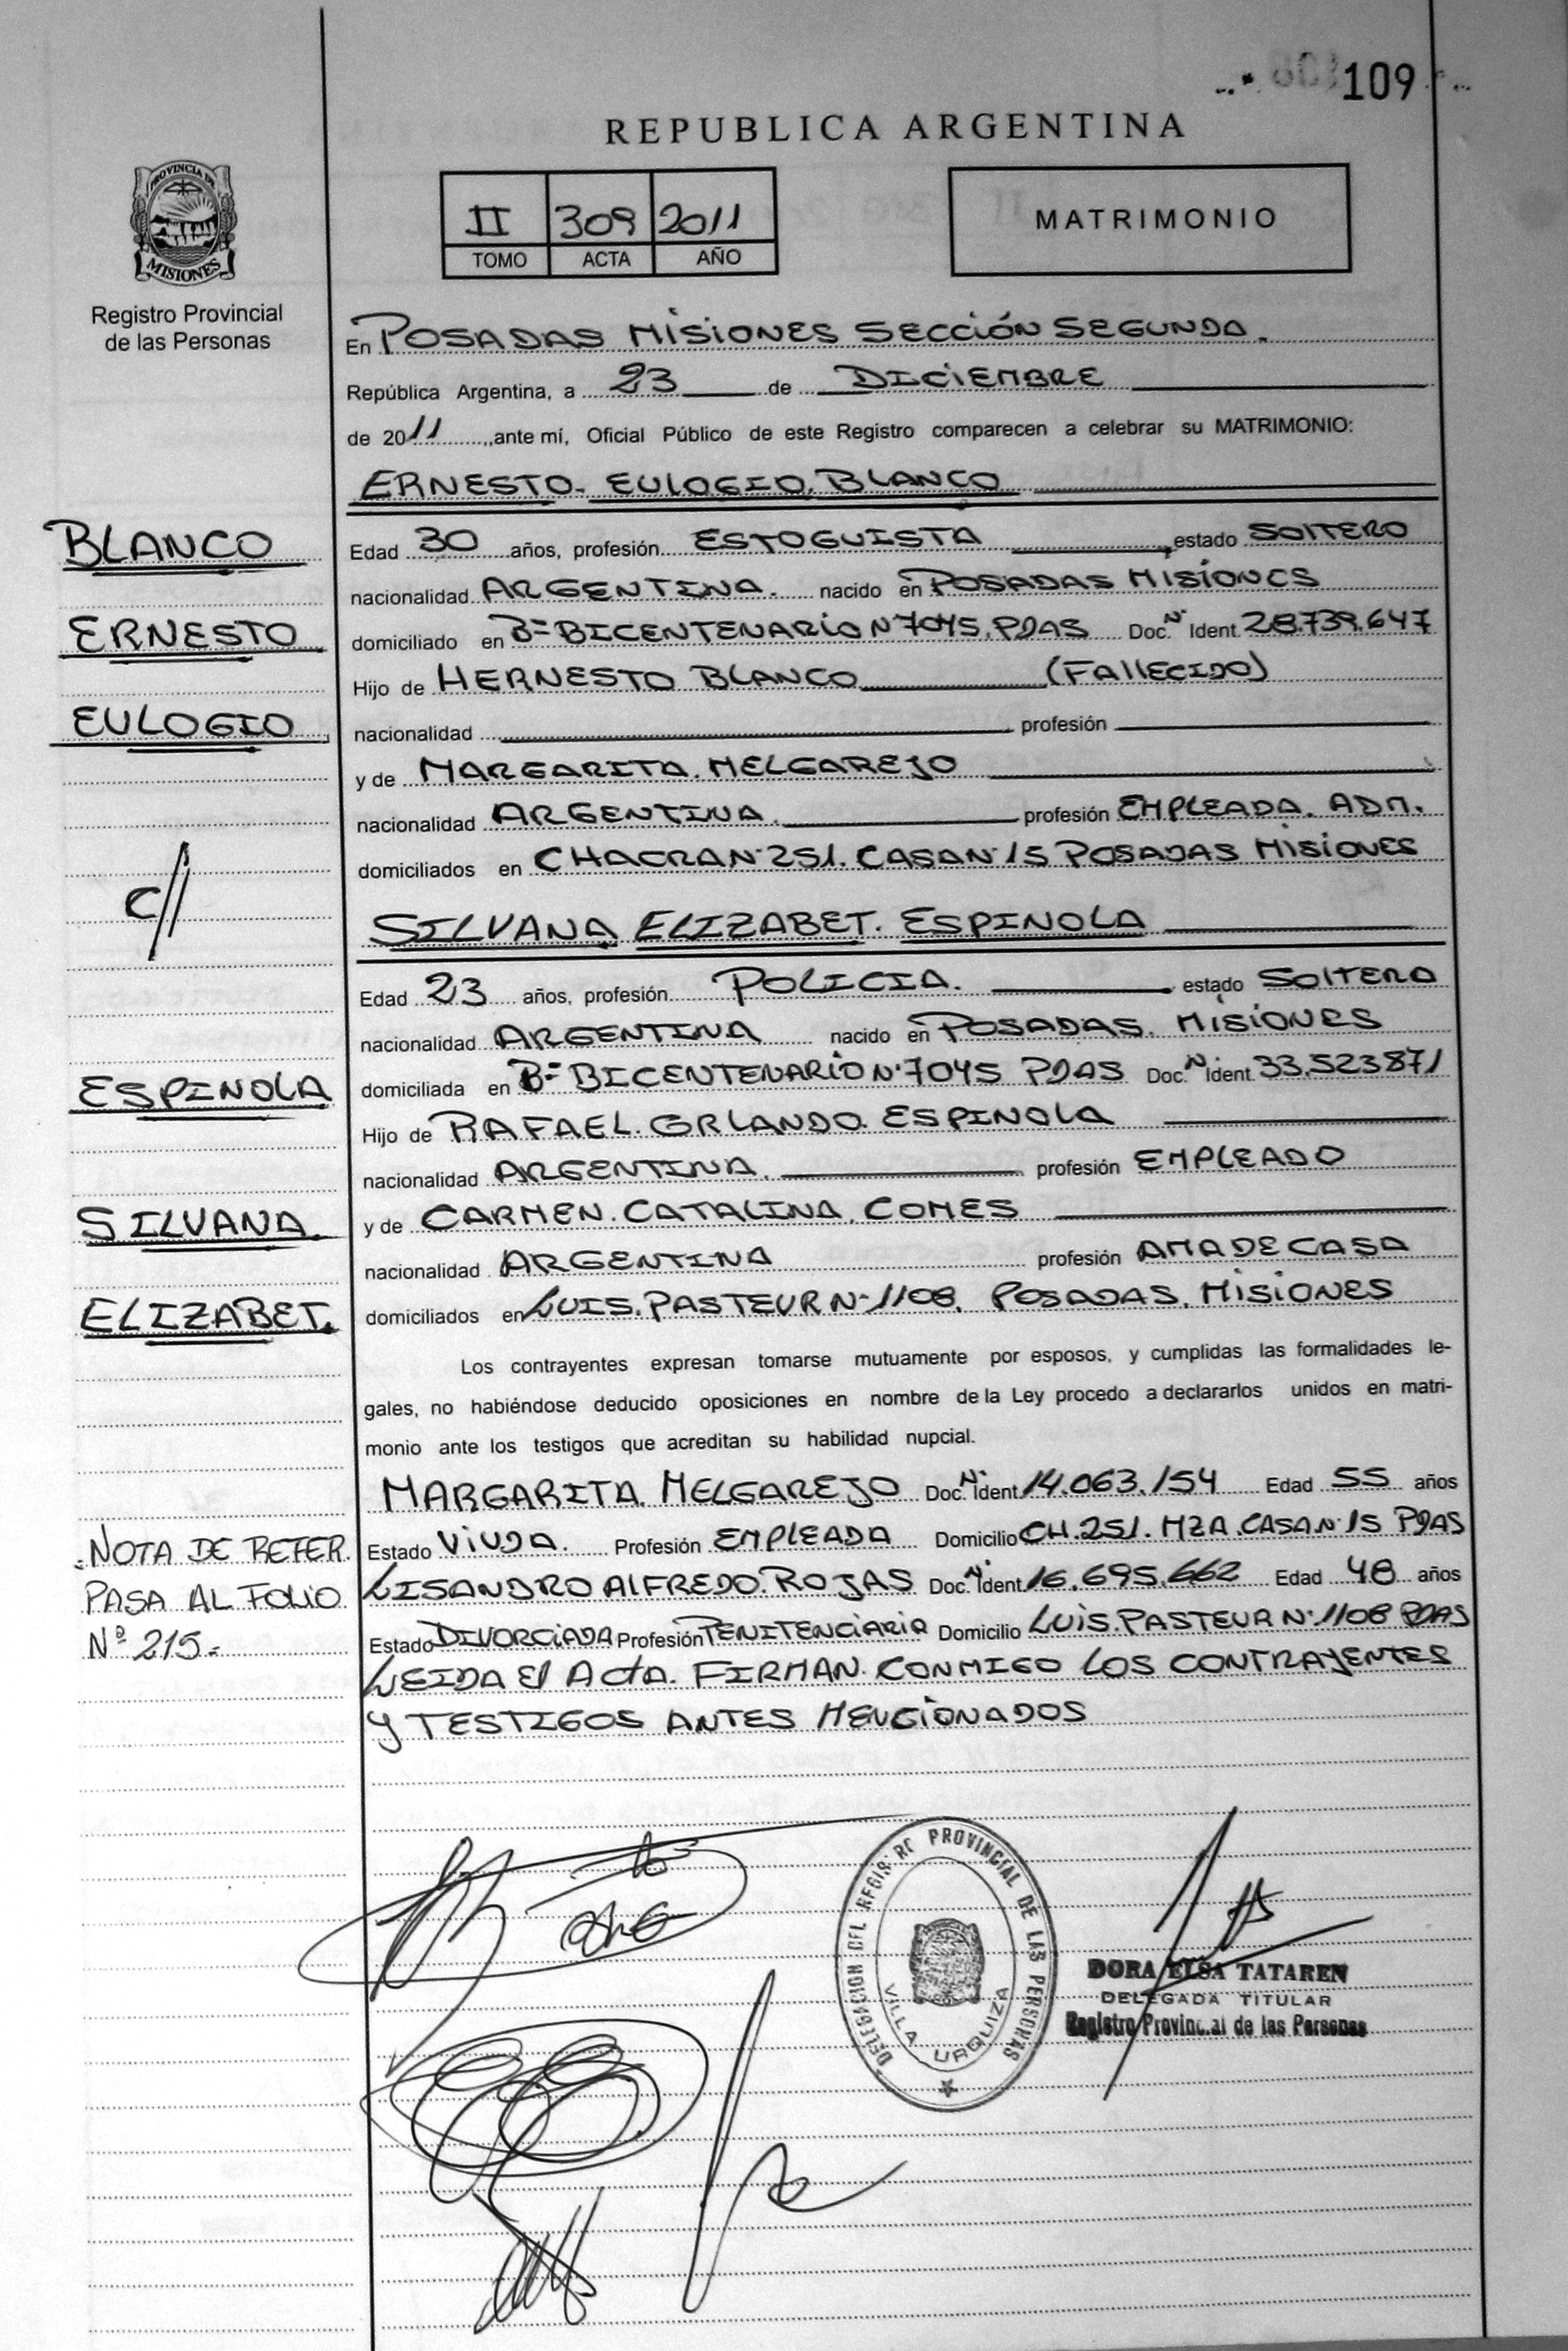 109
REPUBLICA ARGENTINA
PROVINCIA DE
MISIONES
Registro Provincial
de las Personas
II 309 2011
TOMO ACTA AÑO
MATRIMONIO
En POSADAS MISIONES SECCIÓN SEGUNDA.
República Argentina, a 23 de DICIEMBRE
de 2011, ante mí, Oficial Público de este Registro comparecen a celebrar su MATRIMONIO:
ERNESTO. EULOGIO. BLANCO
BLANCO
ERNESTO
EULOGIO
C//
Edad 30 años, profesión ESTOGUISTA estado SOLTERO
nacionalidad ARGENTINA. nacido en POSADAS MISIONES
domiciliado en Bº BICENTENARIO Nº 7045. PDAS Doc. Nº Ident. 28.739.647
Hijo de HERNESTO BLANCO (FALLECIDO)
nacionalidad profesión
y de MARGARITA. MELGAREJO
nacionalidad ARGENTINA. profesión EMPLEADA. ADM.
domiciliados en CHACRA Nº 251. CASA Nº 15 POSADAS MISIONES
SILVANA ELIZABET. ESPINOLA
ESPINOLA
SILVANA.
ELIZABET.
Edad 23 años, profesión POLICIA. estado SOLTERA
nacionalidad ARGENTINA nacido en POSADAS. MISIONES
domiciliada en Bº BICENTENARIO Nº 7045 PDAS Doc. Nº Ident. 33.523871
Hijo de RAFAEL. ORLANDO. ESPINOLA
nacionalidad ARGENTINA. profesión EMPLEADO
y de CARMEN. CATALINA. COMES
nacionalidad ARGENTINA profesión AMA DE CASA
domiciliados en LUIS. PASTEUR Nº 1108. POSADAS. MISIONES
Los contrayentes expresan tomarse mutuamente por esposos, y cumplidas las formalidades le-
gales, no habiéndose deducido oposiciones en nombre de la Ley procedo a declararlos unidos en matri-
monio ante los testigos que acreditan su habilidad nupcial.
MARGARITA. MELGAREJO Doc. Nº Ident. 14.063.154 Edad 55 años
Estado VIUDA. Profesión EMPLEADA Domicilio CH. 251. MZA. CASA Nº 15 PDAS
LISANDRO ALFREDO. ROJAS Doc. Nº Ident. 16.695.662 Edad 48 años
Estado DIVORCIADA Profesión PENITENCIARIA Domicilio LUIS. PASTEUR Nº 1108 PDAS
LEIDA El ActA. FIRMAN. CONMIGO LOS CONTRAYENTES
Y TESTIGOS ANTES MENCIONADOS
NOTA DE REFER.
PASA AL FOLIO
Nº 215.-
DELEGACION DEL REGISTRO PROVINCIAL DE LAS PERSONAS
VILLA URQUIZA
DORA ELSA TATAREN
DELEGADA TITULAR
Registro Provincial de las Personas